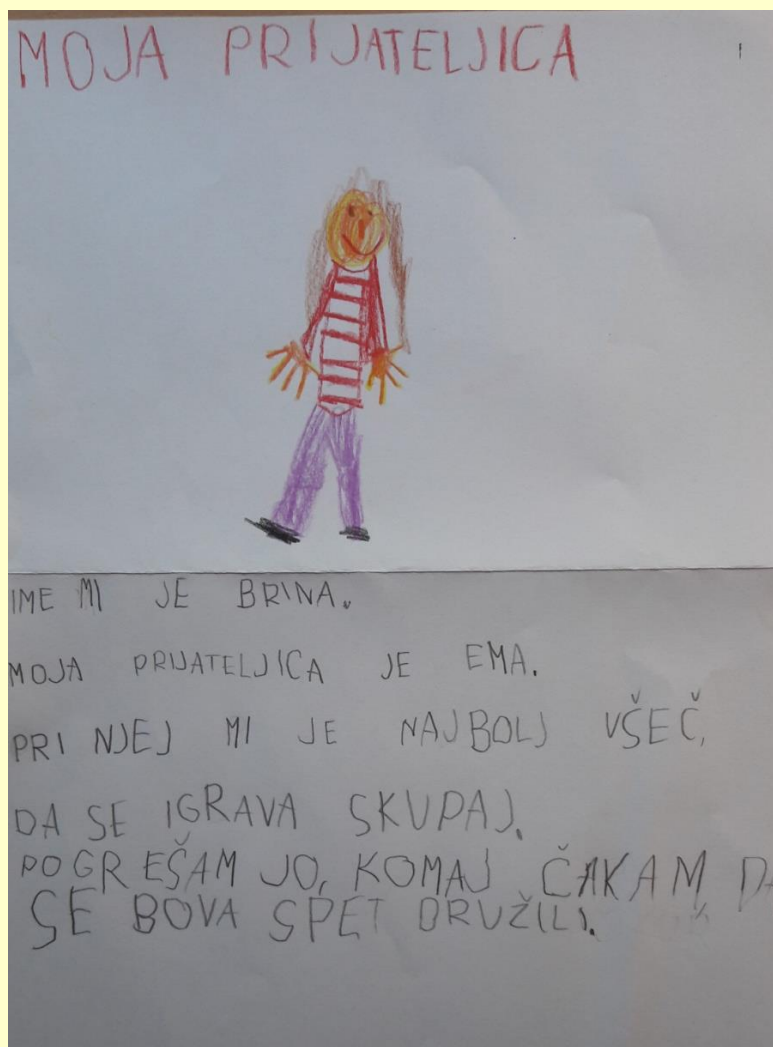 MOJA PRIJATELJICA
IME MI JE BRINA.
MOJA PRIJATELJICA JE EMA.
PRI NJEJ MI JE NAJBOLJ VŠEČ,
DA SE IGRAVA SKUPAJ.
POGREŠAM JO, KOMAJ ČAKAM, DA
SE BOVA SPET DRUŽILI.